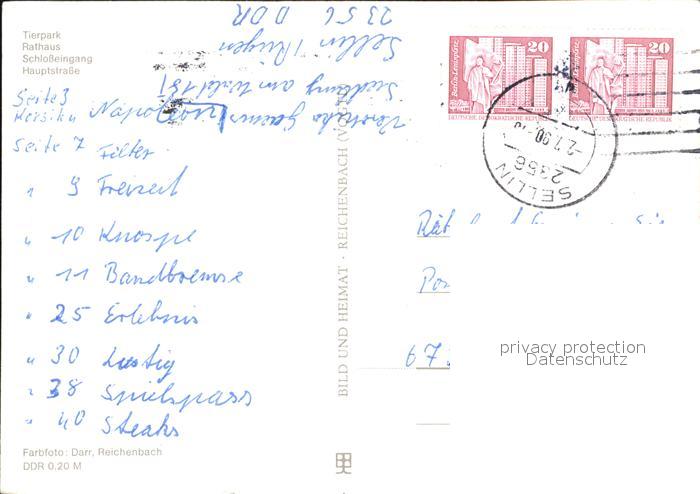 Tierpark
Rathaus
Schloßeingang
Hauptstraße
2356 DDR
Sellin / Rügen
Siedlung am Wald 181
Seite 3
Korsika Napoleon
Seite 7 Filter
" 9 Freizeit
" 10 Knospe
" 11 Bandbremse
" 25 Erlebnis
" 30 Lustig
" 38 Spielspass
" 40 Steaks
Farbfoto: Darr, Reichenbach
DDR 0,20 M
BILD UND HEIMAT · REICHENBACH (VOGTL)
Berlin-Leninplatz 20
DEUTSCHE DEMOKRATISCHE REPUBLIK
Berlin-Leninplatz 20
DEUTSCHE DEMOKRATISCHE REPUBLIK
-2.7.90
2356
SELLIN
67
privacy protection
Datenschutz